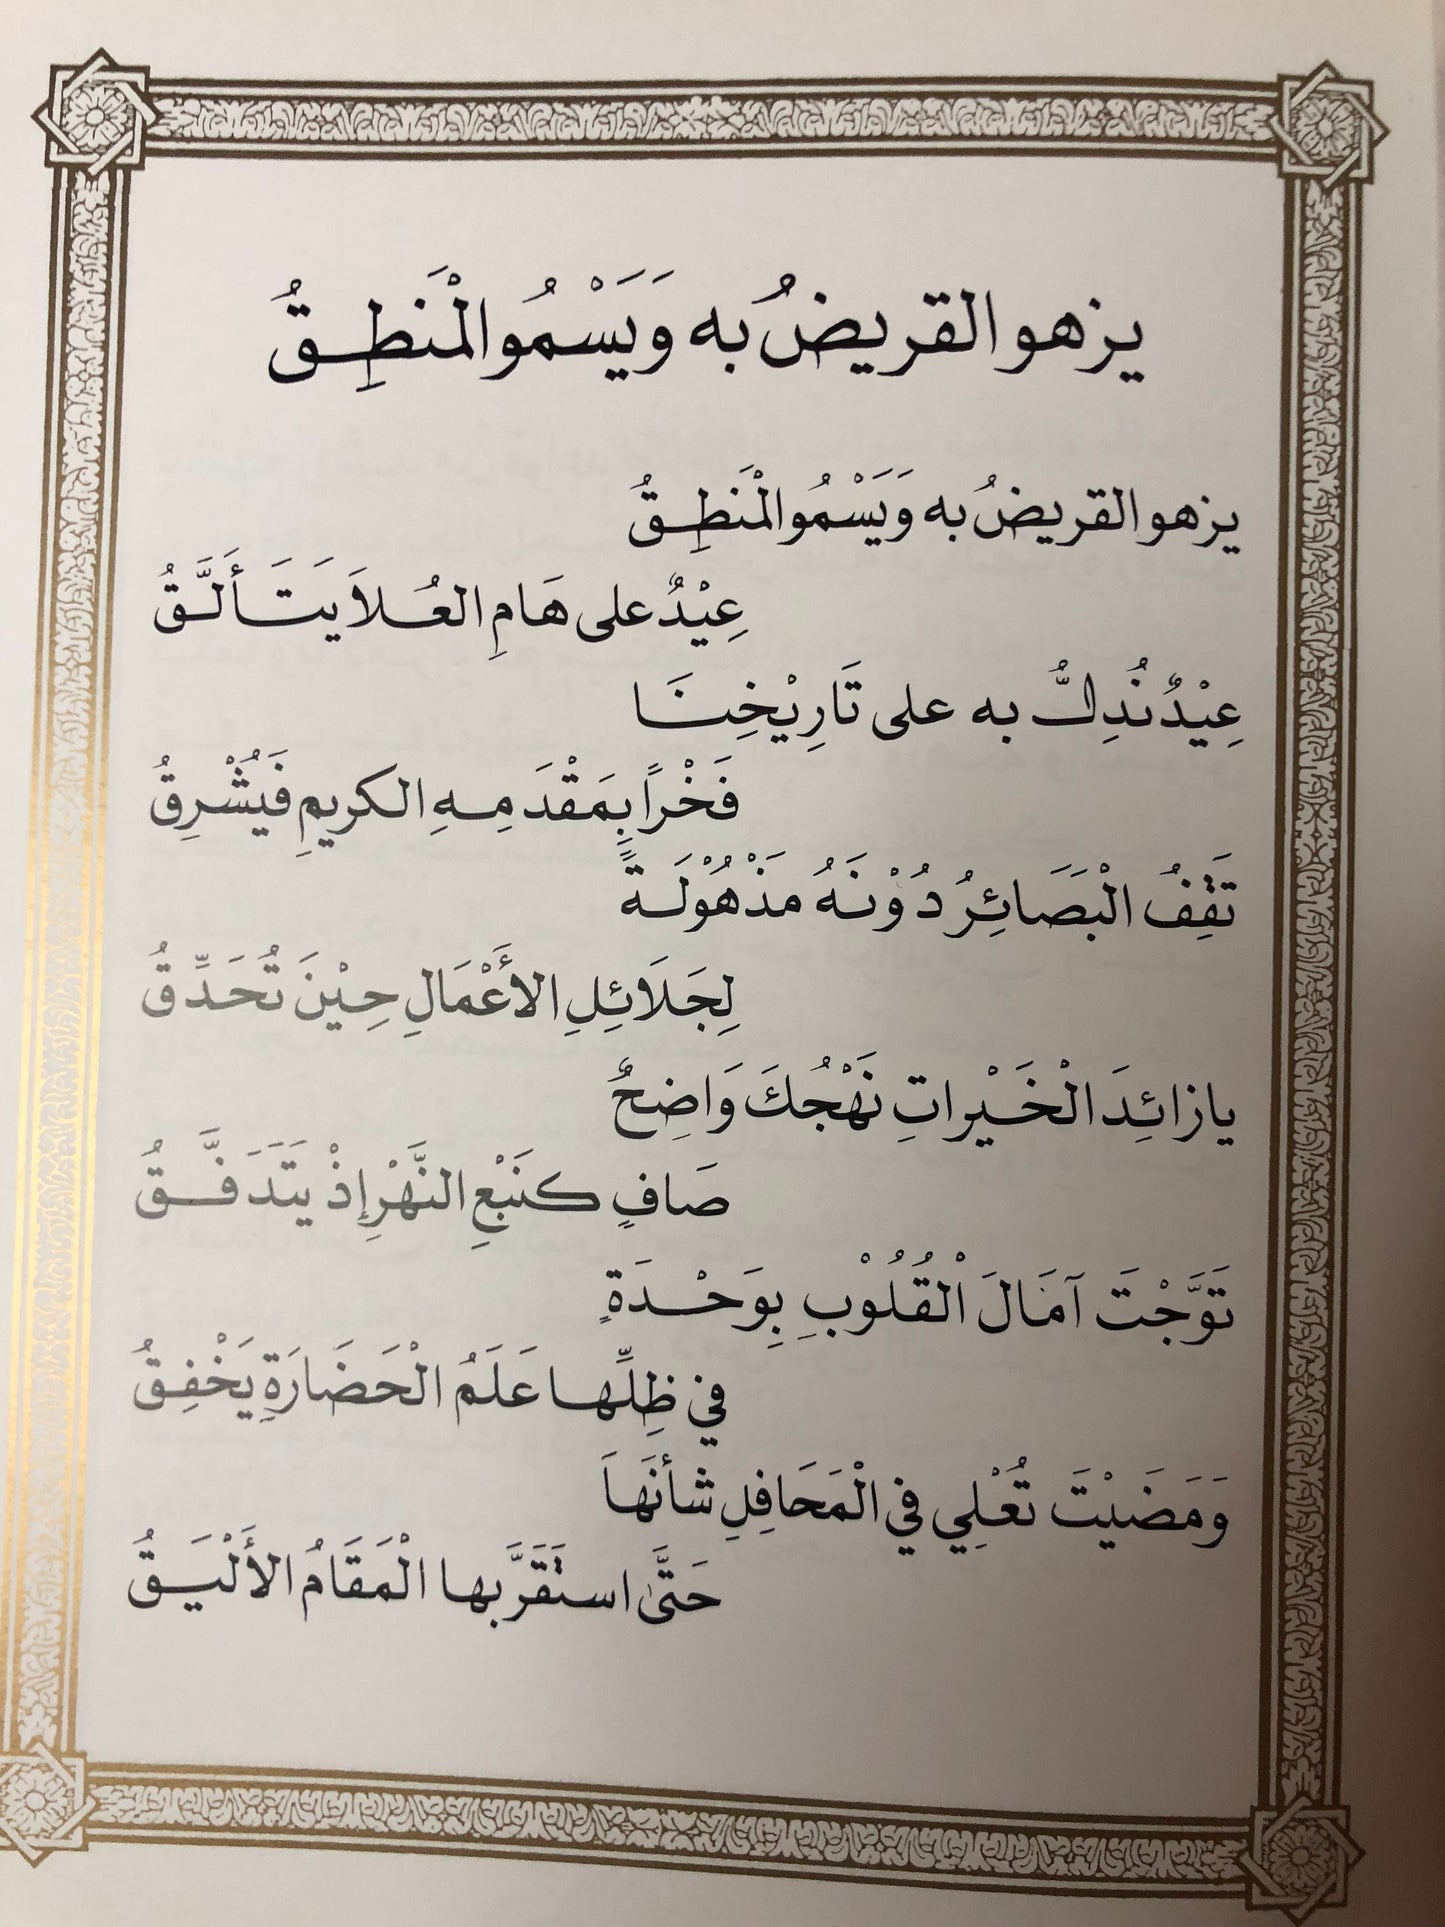 يزهو القريضُ به وَيَسْمُو الْمَنطِقُ
يزهو القريضُ به وَيَسْمُو الْمَنطِقُ
عِيْدٌ على هَامِ العُلاَ يَتَأَلَّقُ
عِيْدٌ نُدِلُّ به على تَارِيْخِنَا
فَخْراً بِمَقْدَمِهِ الكريمِ فَيُشْرِقُ
تَقِفُ الْبَصَائِرُ دُوْنَهُ مَذْهُوْلَةً
لِجَلَائِلِ الأَعْمَالِ حِيْنَ تُحَدِّقُ
يا زائِدَ الْخَيْراتِ نَهْجُكَ وَاضِحٌ
صَافٍ كَنَبْعِ النَّهْرِ إِذْ يَتَدَفَّقُ
تَوَّجْتَ آمَالَ الْقُلُوْبِ بِوَحْدَةٍ
في ظِلِّها عَلَمُ الْحَضَارَةِ يَخْفِقُ
وَمَضَيْتَ تُعْلِي في الْمَحَافِلِ شَأْنَهَا
حَتَّى اسْتَقَرَّ بها الْمَقَامُ الأَلْيَقُ